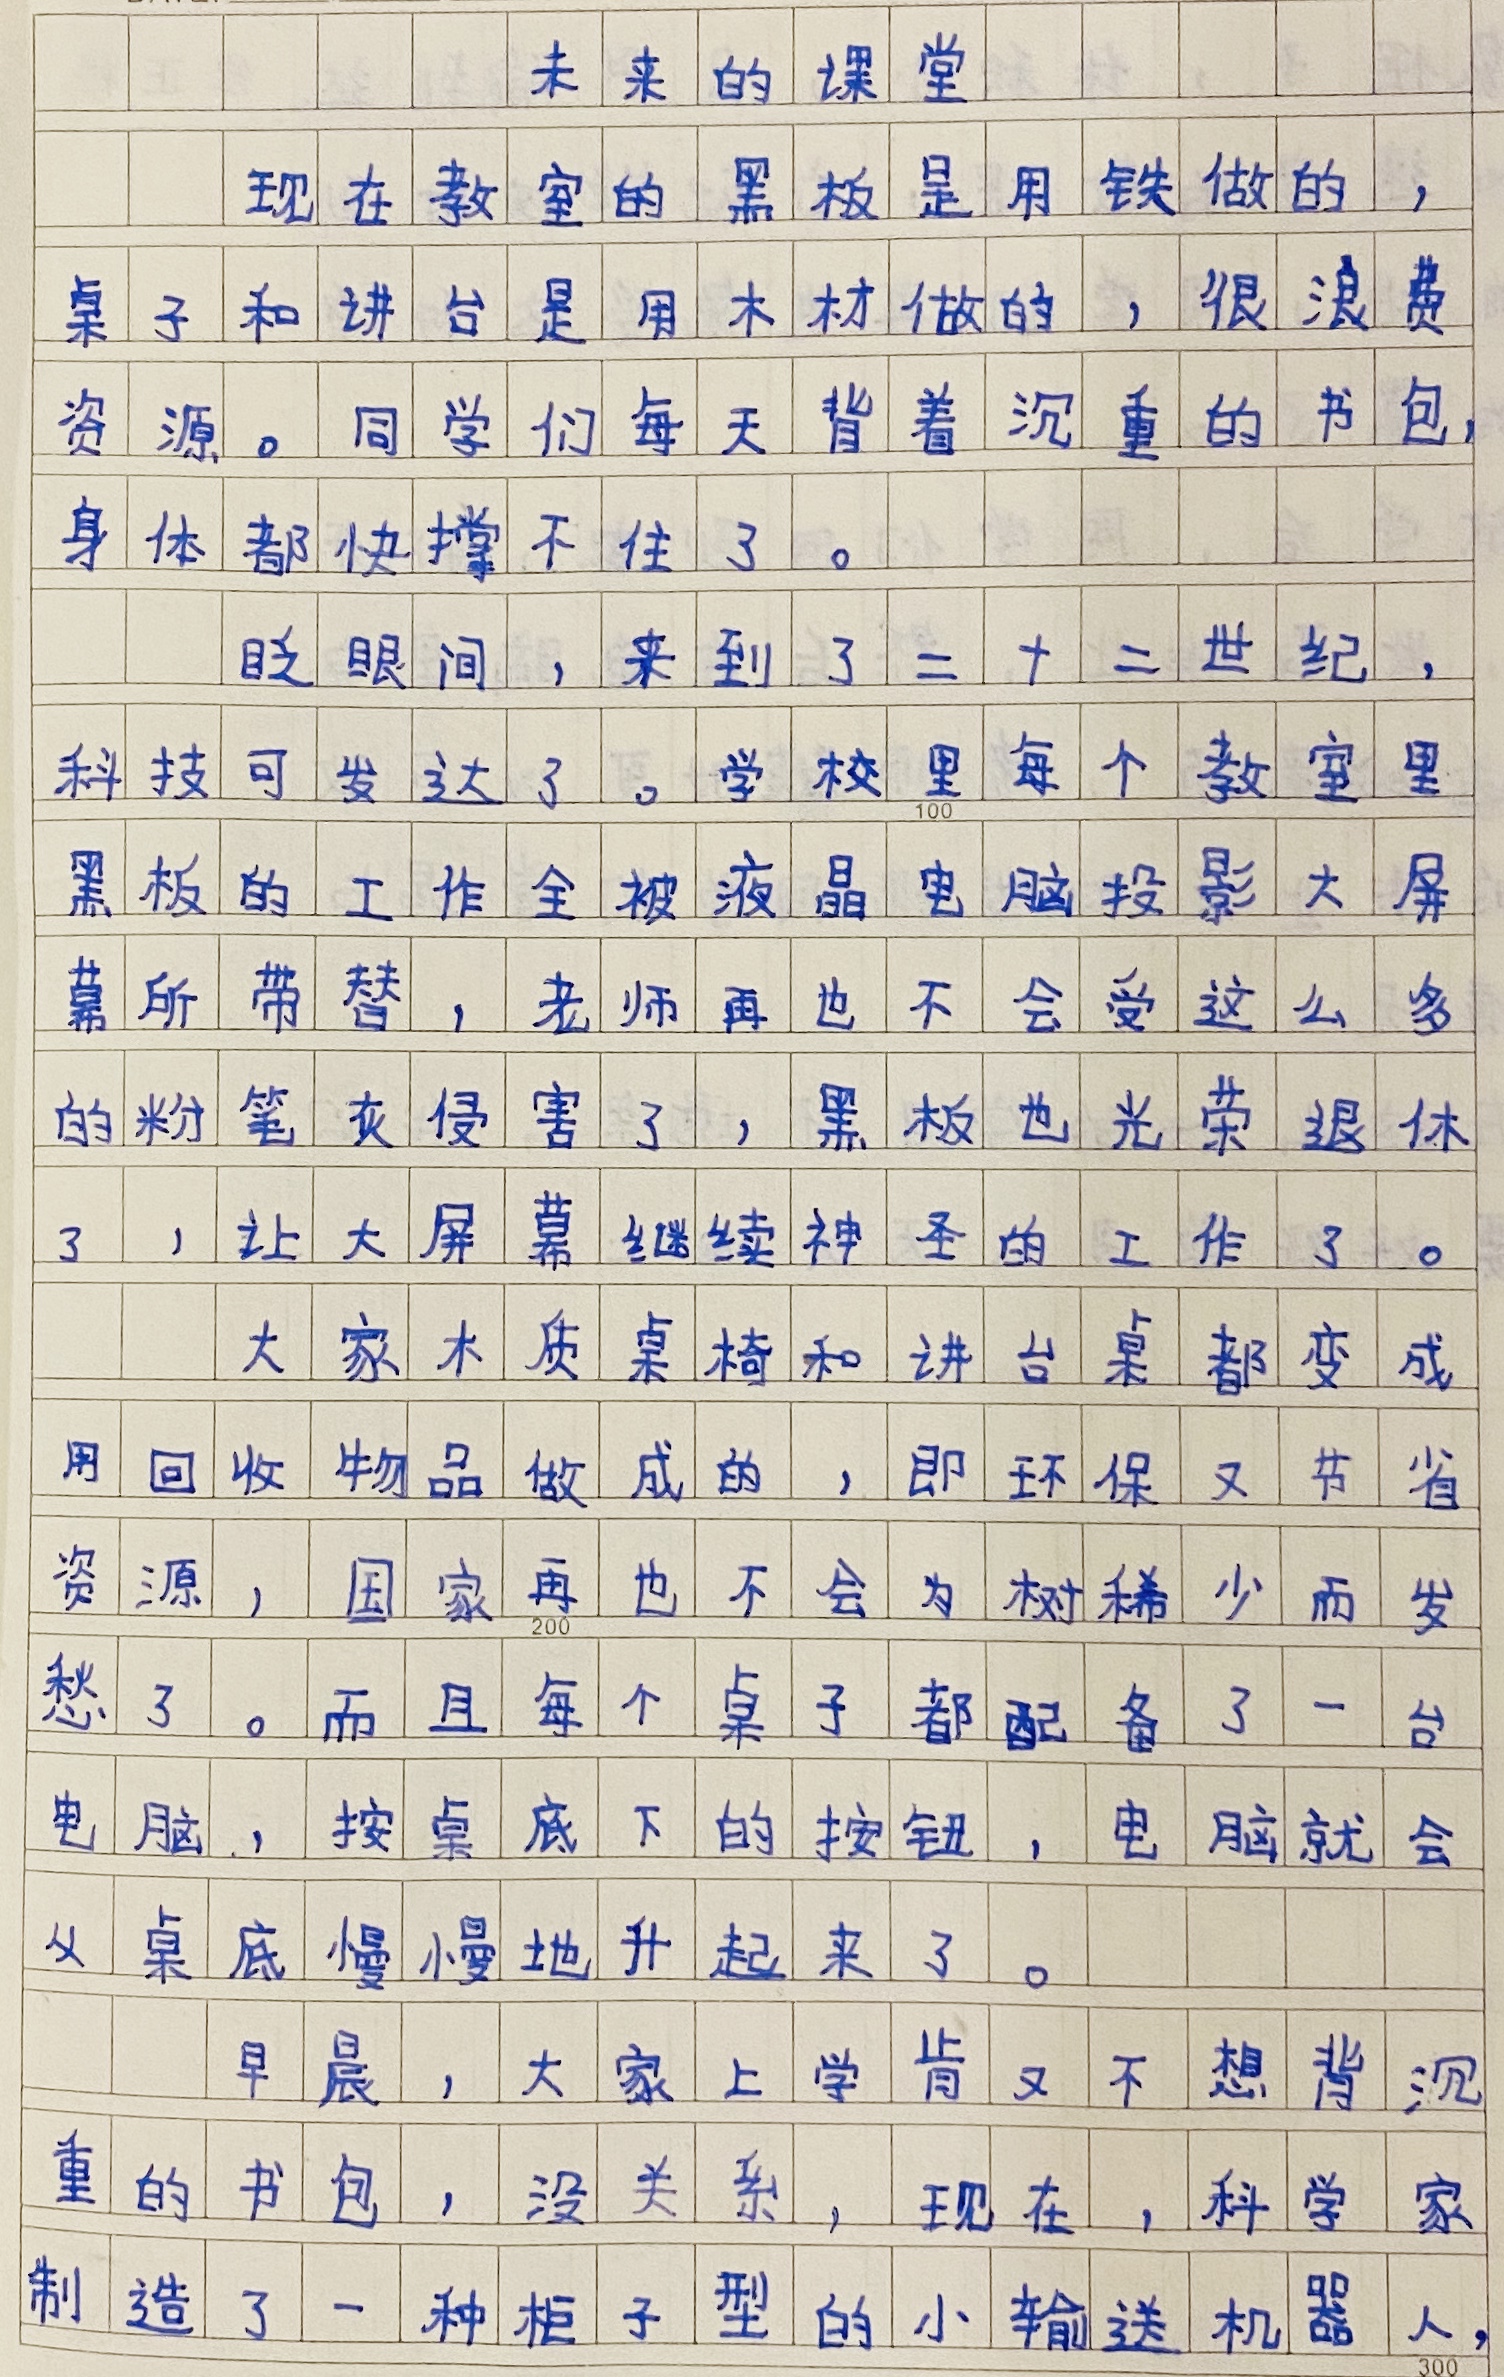 未来的课堂
现在教室的黑板是用铁做的，
桌子和讲台是用木材做的，很浪费
资源。同学们每天背着沉重的书包，
身体都快撑不住了。
眨眼间，来到了二十二世纪，
科技可发达了。学校里每个教室里
100
黑板的工作全被液晶电脑投影大屏
幕所带替，老师再也不会受这么多
的粉笔灰侵害了，黑板也光荣退休
了，让大屏幕继续神圣的工作了。
大家木质桌椅和讲台桌都变成
用回收物品做成的，即环保又节省
资源，国家再也不会为树稀少而发
200
愁了。而且每个桌子都配备了一台
电脑，按桌底下的按钮，电脑就会
从桌底慢慢地升起来了。
早晨，大家上学肯又不想背沉
重的书包，没关系，现在，科学家
制造了一种柜子型的小输送机器人，
300